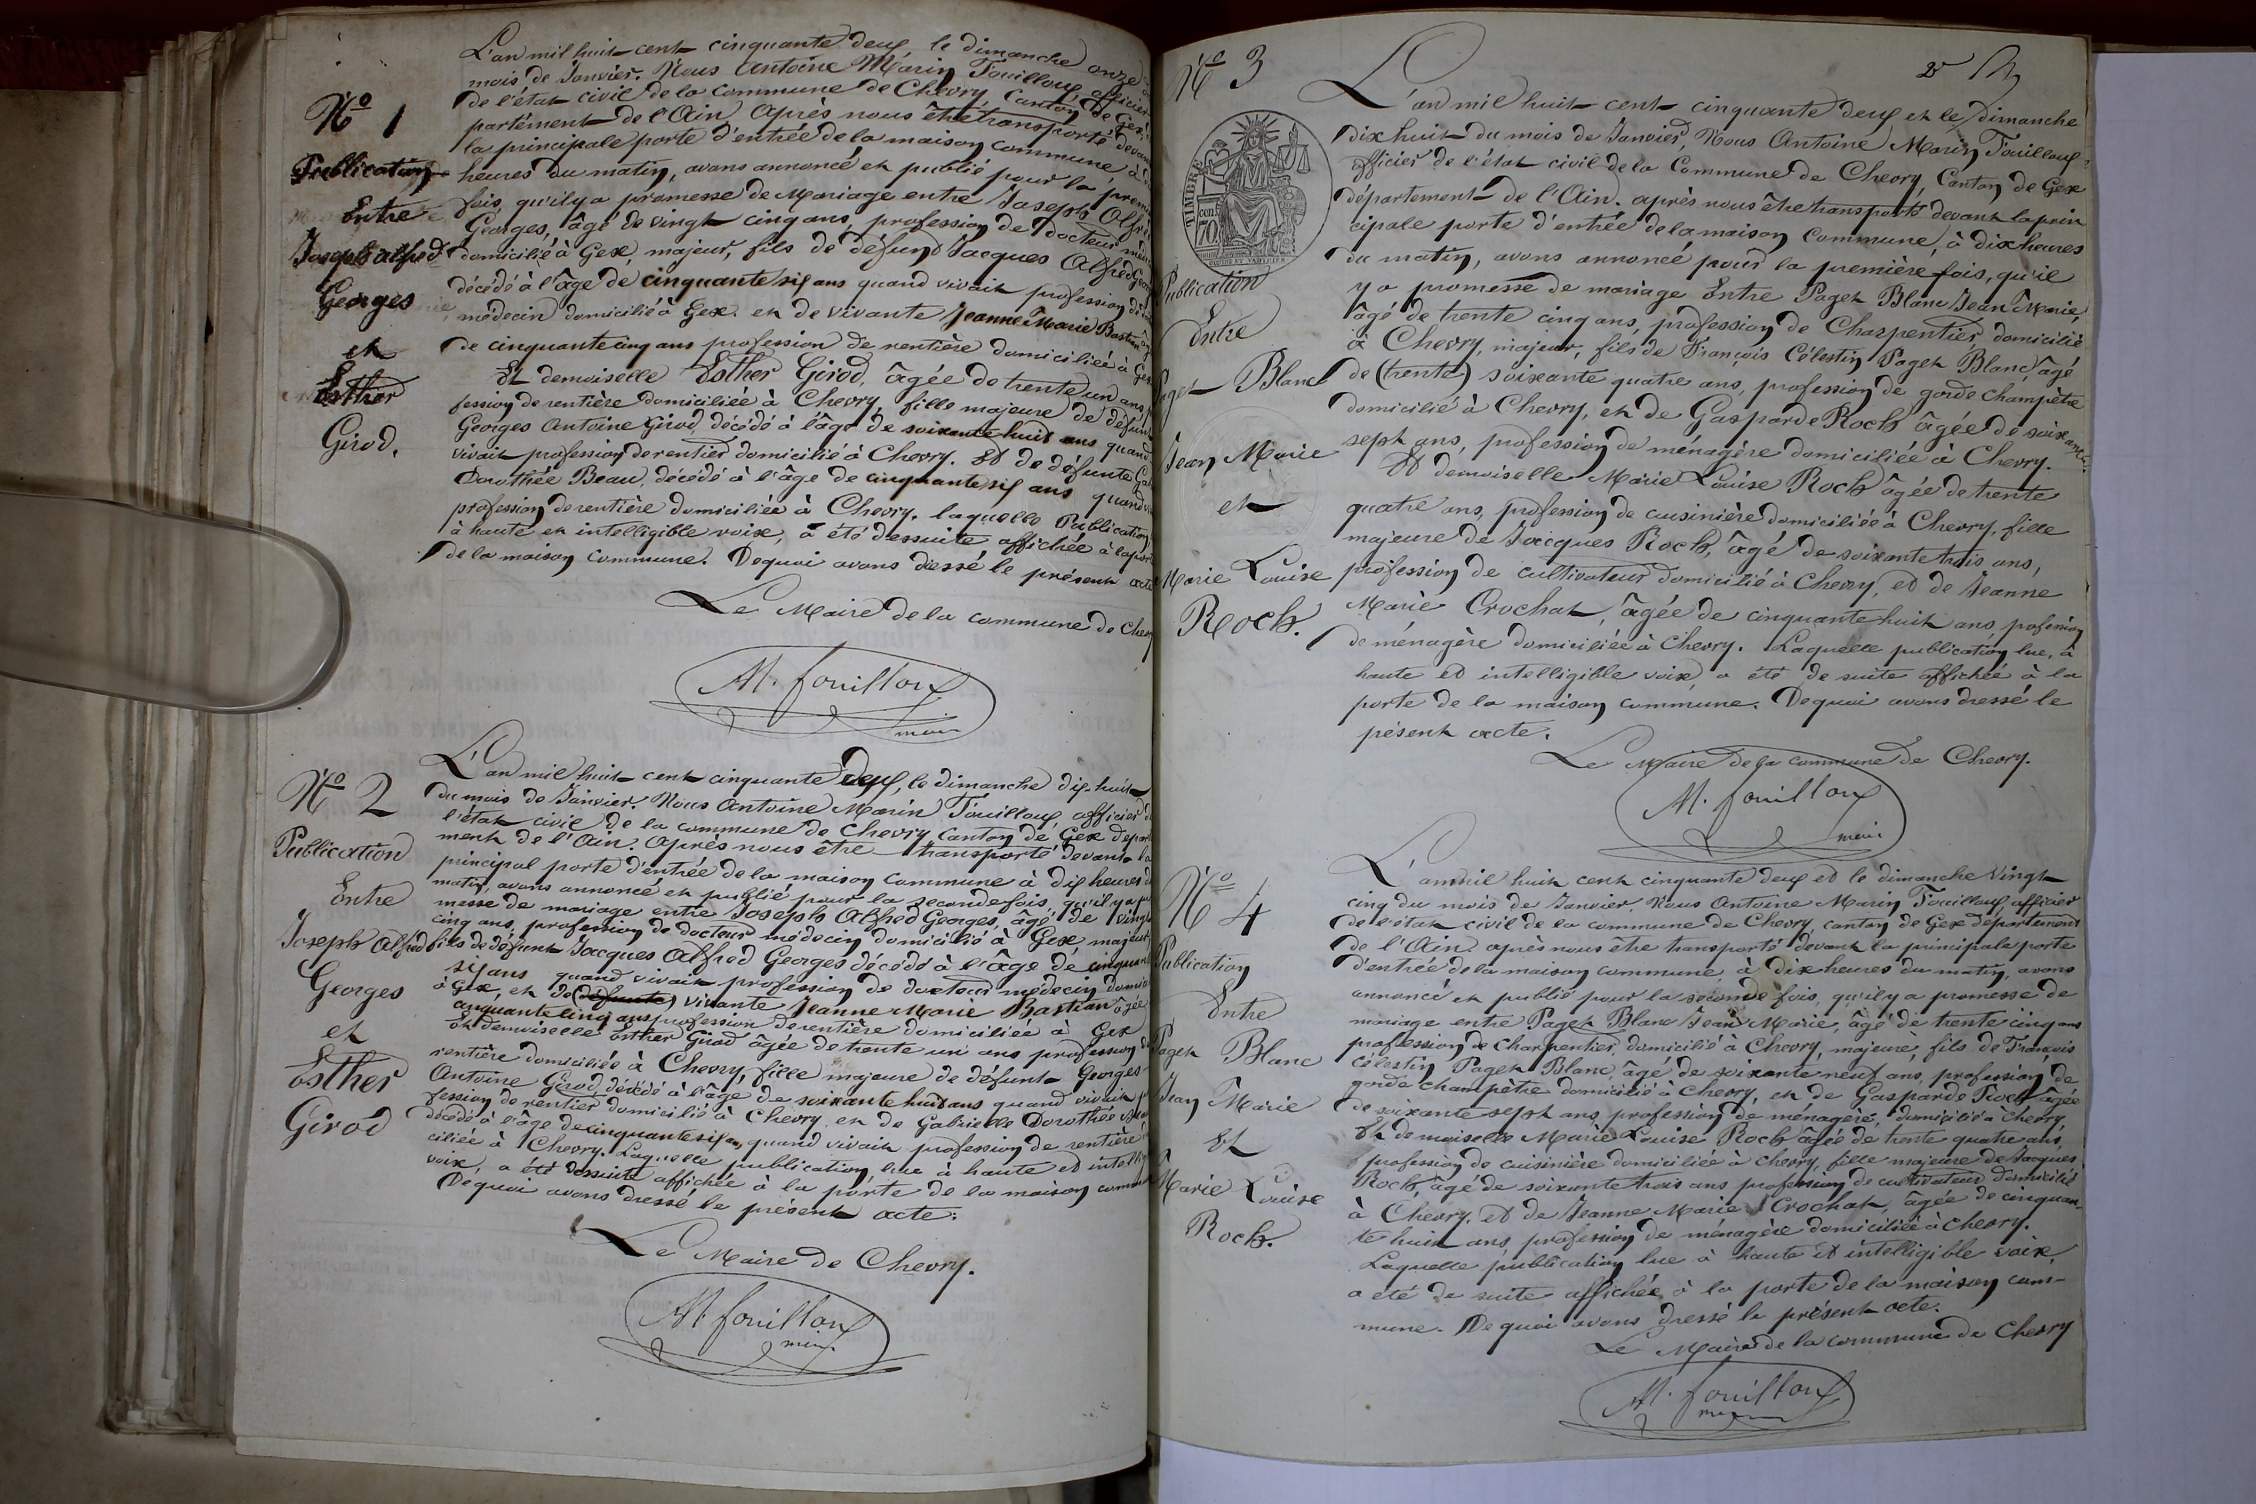 N° 1
Publication
Entre
Joseph Alfred
Georges
et
Esther
Girod.
L'an mil huit cent cinquante deux, le dimanche onze
mois de Janvier. Nous Antoine Marin Fouilloux, officier
de l'état civil de la commune de Chevry, Canton de Gex,
partement de l'Ain. Après nous être transporté devant
la principale porte d'entrée de la maison commune, à
heures du matin, avons annoncé et publié pour la premi
fois, qu'il y a promesse de Mariage entre Joseph Alfre
Georges, âgé de vingt cinq ans, profession de docteur méde
domicilié à Gex, majeur, fils de défunt Jacques Alfred Geor
décédé à l'âge de cinquante six ans quand vivait profession de
médecin domicilié à Gex. et de vivante Jeanne Marie Bastian
de cinquante cinq ans profession de rentière domiciliée à Gex
Et demoiselle Esther Girod, âgée de trente un ans,
fession de rentière domiciliée à Chevry, fille majeure de défunt
Georges Antoine Girod, décédé à l'âge de soixante huit ans quand
vivait profession de rentier domicilié à Chevry. Et de défunte Ga
Dorothée Beau, décédé à l'âge de cinquante six ans quand
profession de rentière domiciliée à Chevry. laquelle Publication,
à haute et intelligible voix, a été dessuite affichée à la por
de la maison commune. Dequoi avons dressé le présent acte
Le Maire de la commune de Chev
M. fouilloux
maire
N° 2
Publication
Entre
Joseph Alfred
Georges
et
Esther
Girod
L'an mil huit cent cinquante deux, le dimanche dix-huit
du mois de Janvier. Nous Antoine Marin Fouilloux, officier de
l'état civil de la commune de Chevry Canton de Gex depar
ment de l'Ain. Après nous être transporté devant la
principal porte d'entrée de la maison commune à dix heures
matin, avons annoncé et publié pour la seconde fois, qu'il y a pro
messe de mariage entre Joseph Alfred Georges, âgé de vingt
cinq ans, profession de docteur médecin domicilié à Gex majeur
fils de défunt Jacques Alfred Georges décédé à l'âge de cinquan
six ans quand vivait profession de docteur médecin domici
à Gex, et de (défunte) vivante Jeanne Marie Bastian âgée
cinquante cinq ans profession de rentière domiciliée à Gex
Et demoiselle Esther Girod âgée de trente un ans profession
rentière domiciliée à Chevry, fille majeure de défunt Georges
Antoine Girod, décédé à l'âge de soixante huit ans quand vivait
fession de rentier domicilié à Chevry, et de Gabrielle Dorothée
décédé à l'âge de cinquante six ans, quand vivait profession de rentière
ciliée à Chevry. Laquelle publication, lue à haute et intelli
voix, a été dessuite affichée à la porte de la maison commu
Dequoi avons dressé le présent acte.
Le Maire de Chevry.
M. fouilloux
maire
2
N° 3
TIMBRE
70
Publication
Entre
Paget Blanc
Jean Marie
et
Marie Louise
Roch.
L'an mil huit cent cinquante deux et le dimanche
dix huit du mois de Janvier, Nous Antoine Marin Fouilloux
officier de l'état civil de la Commune de Chevry, Canton de Gex
département de l'Ain. après nous être transporté devant la prin
cipale porte d'entrée de la maison commune, à dix heures
du matin, avons annoncé pour la première fois, qu'il
y a promesse de mariage Entre Paget Blanc Jean Marie,
âgé de trente cinq ans, profession de Charpentier, domicilié
à Chevry, majeur, fils de François Célestin Paget Blanc, âgé
de (trente) soixante quatre ans, profession de garde champêtre
domicilié à Chevry, et de Gasparde Roch âgée de soixante
sept ans, profession de ménagère domiciliée à Chevry.
Et demoiselle Marie Louise Roch âgée de trente
quatre ans, profession de cuisinière domiciliée à Chevry, fille
majeure de Jacques Roch, âgé de soixante trois ans,
profession de cultivateur domicilié à Chevry, et de Jeanne
Marie Crochat, âgée de cinquante huit ans, profession
de ménagère domiciliée à Chevry. Laquelle publication lue, à
haute et intelligible voix, a été de suite affichée à la
porte de la maison commune. Dequoi avons dressé le
présent acte.
Le Maire de la commune de Chevry.
M. fouilloux
maire
N° 4
Publication
Entre
Paget Blanc
Jean Marie
Et
Marie Louise
Roch.
L'an mil huit cent cinquante deux et le dimanche vingt
cinq du mois de Janvier. Nous Antoine Marin Fouilloux officier
de l'état civil de la commune de Chevry, canton de Gex département
de l'Ain après nous être transporté devant la principale porte
d'entrée de la maison commune, à dix heures du matin, avons
annoncé et publié pour la seconde fois, qu'il y a promesse de
mariage entre Paget Blanc Jean Marie, âgé de trente cinq ans
profession de charpentier, domicilié à Chevry, majeure, fils de François
Célestin Paget Blanc, âgé de soixante neuf ans, profession de
garde champêtre domicilié à Chevry, et de Gasparde Roch âgée
de soixante sept ans, profession de ménagère, domicilié à Chevry.
Et demoiselle Marie Louise Roch âgée de trente quatre ans,
profession de cuisinière domiciliée à Chevry, fille majeure de Jacques
Roch, âgé de soixante trois ans profession de cultivateur domicilié
à Chevry. et de Jeanne Marie Crochat, âgée de cinquan-
te huit ans, profession de ménagère domiciliée à Chevry.
Laquelle publication lue à haute et intelligible voix,
a été de suite affichée à la porte de la maison com-
mune. De quoi avons dressé le présent acte.
Le Maire de la commune de Chevry
M. fouilloux
maire